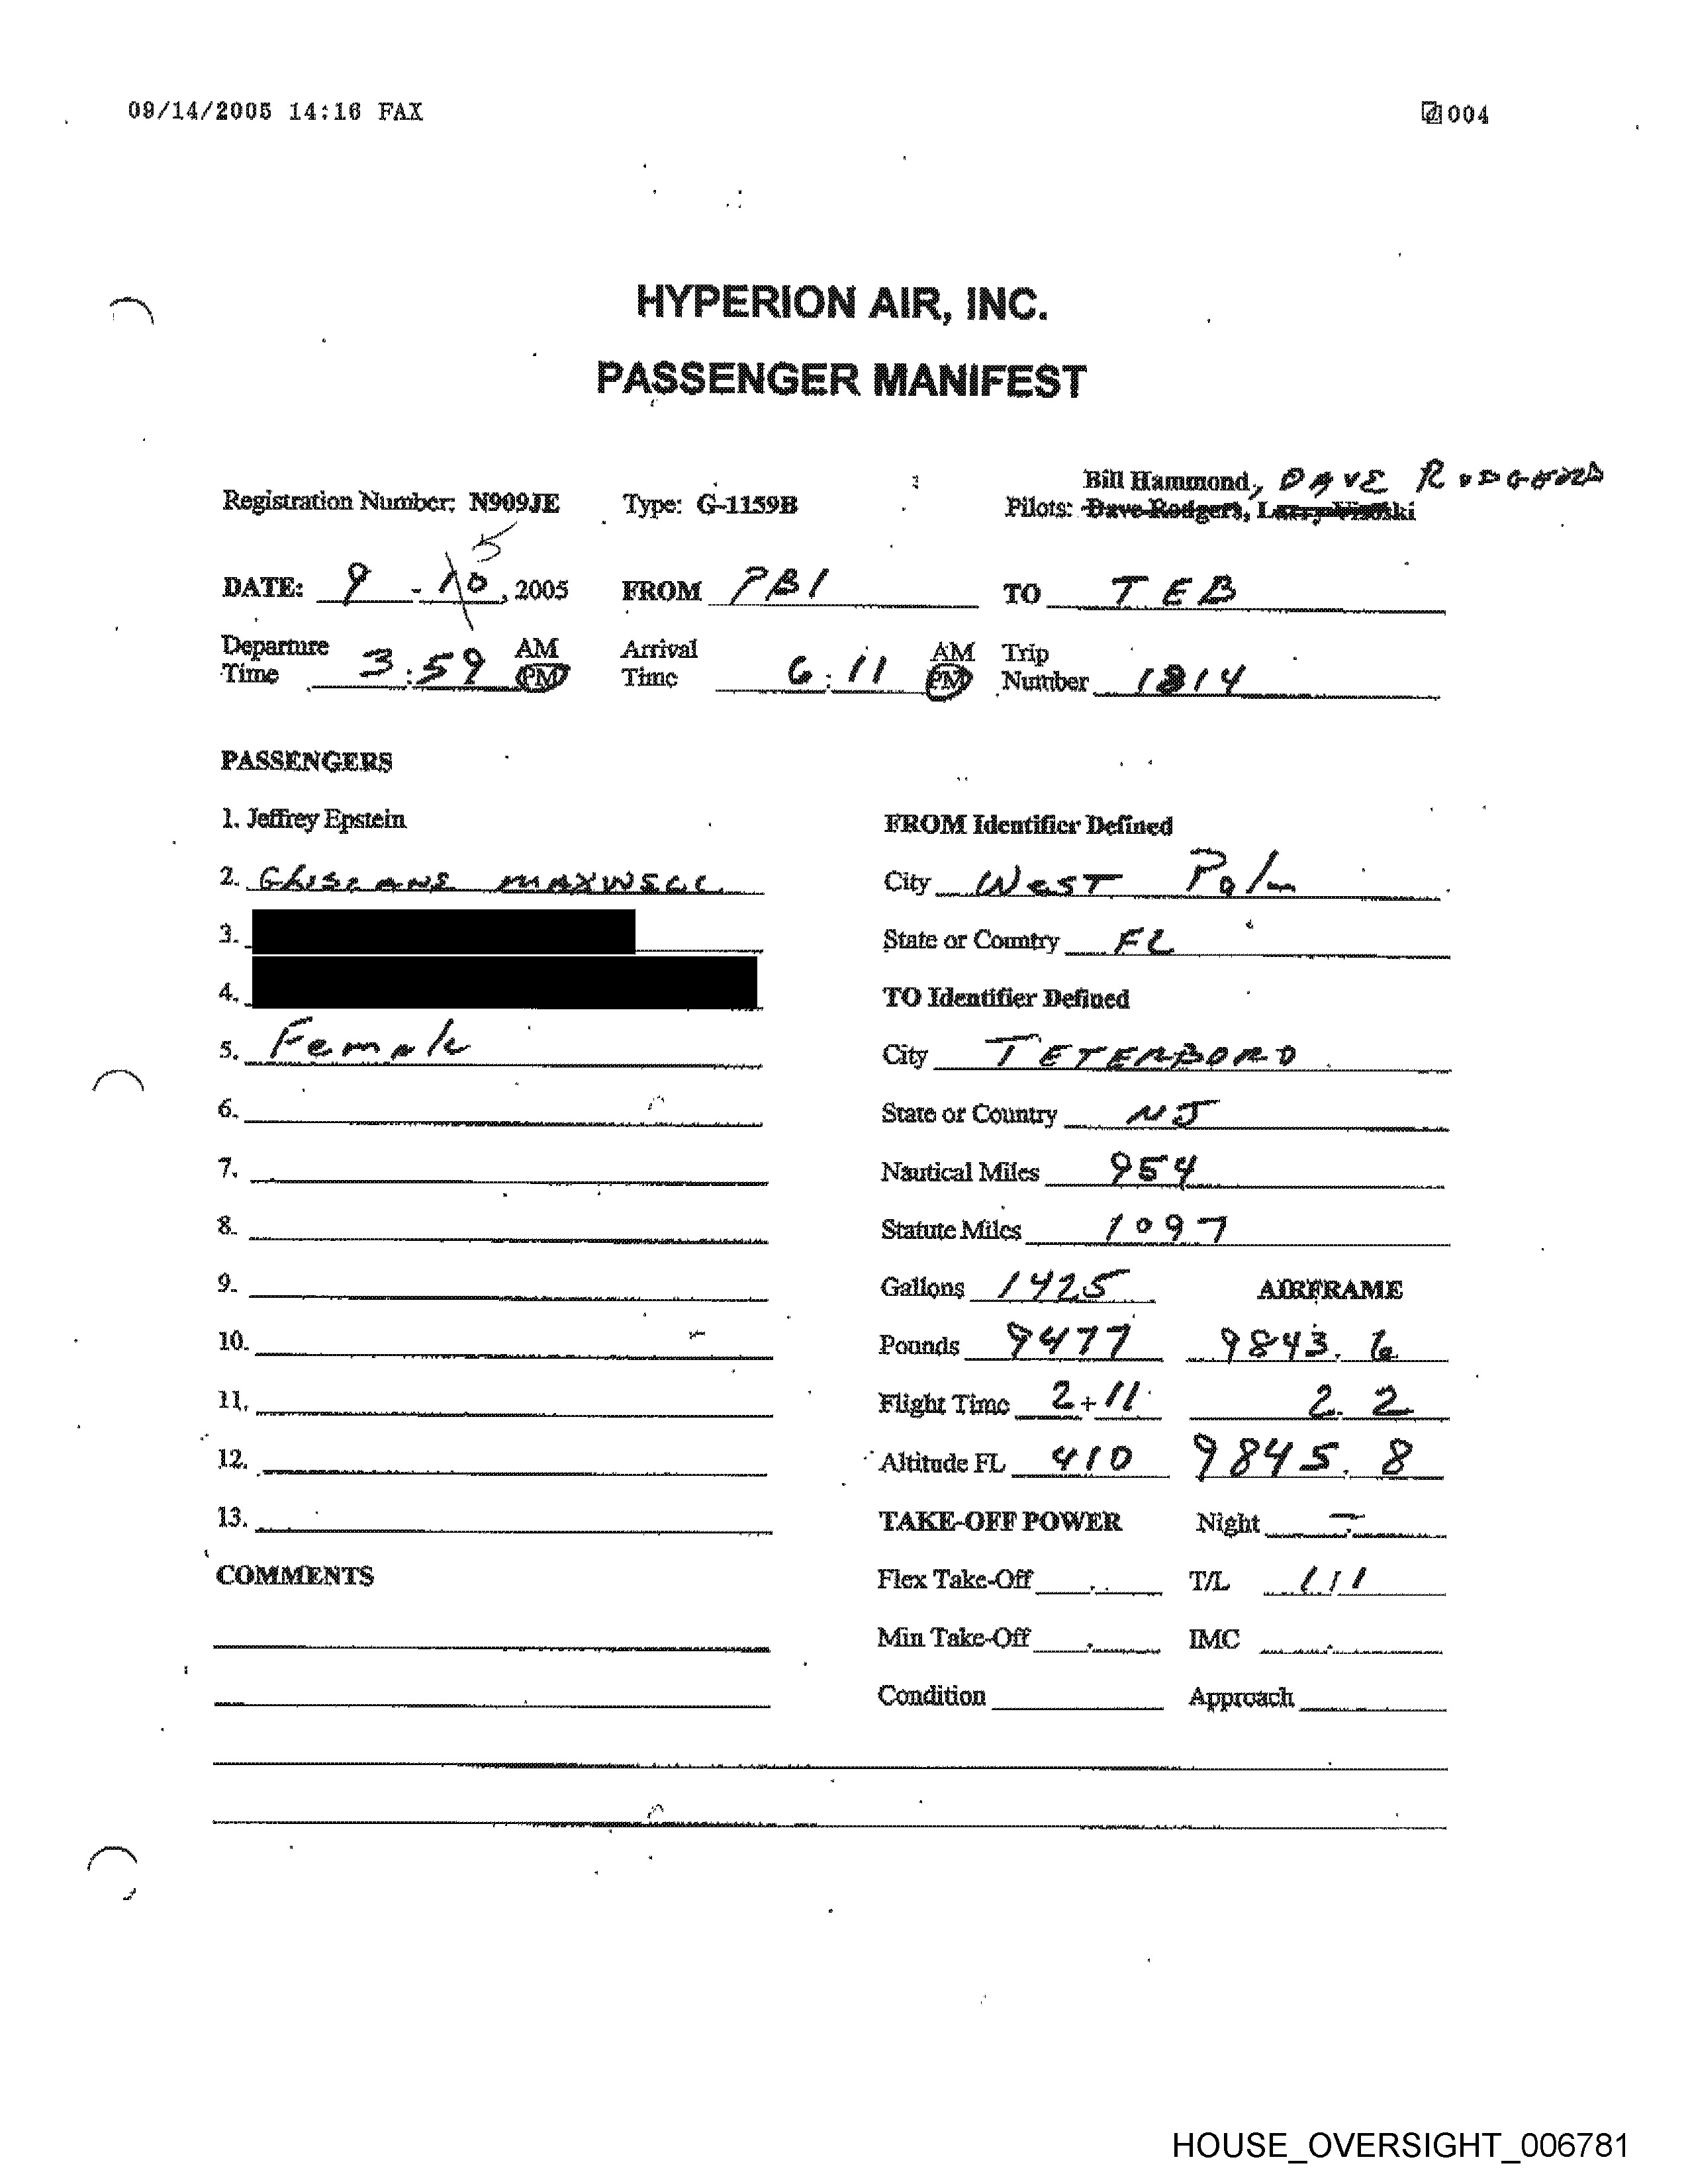 09/14/2005 14:16 FAX 004
HYPERION AIR, INC.
PASSENGER MANIFEST
Bill Hammond, DAVE RODGERS
Registration Number: N909JE Type: G-1159B Pilots: Dave Rodgers, Larry Visoski
5
DATE: 9 - 10, 2005 FROM PBI TO TEB
Departure Time 3:59 AM PM Arrival Time 6:11 AM PM Trip Number 1814
PASSENGERS
1. Jeffrey Epstein FROM Identifier Defined
2. GHISLANE MAXWELL City West Palm
3. State or Country FL
4. TO Identifier Defined
5. Female City TETERBORO
6. State or Country NJ
7. Nautical Miles 954
8. Statute Miles 1097
9. Gallons 1425 AIRFRAME
10. Pounds 9477 9843.6
11. Flight Time 2+11 2.2
12. Altitude FL 410 9845.8
13. TAKE-OFF POWER Night -
COMMENTS Flex Take-Off T/L 1/1
Min Take-Off IMC
Condition Approach
HOUSE_OVERSIGHT_006781